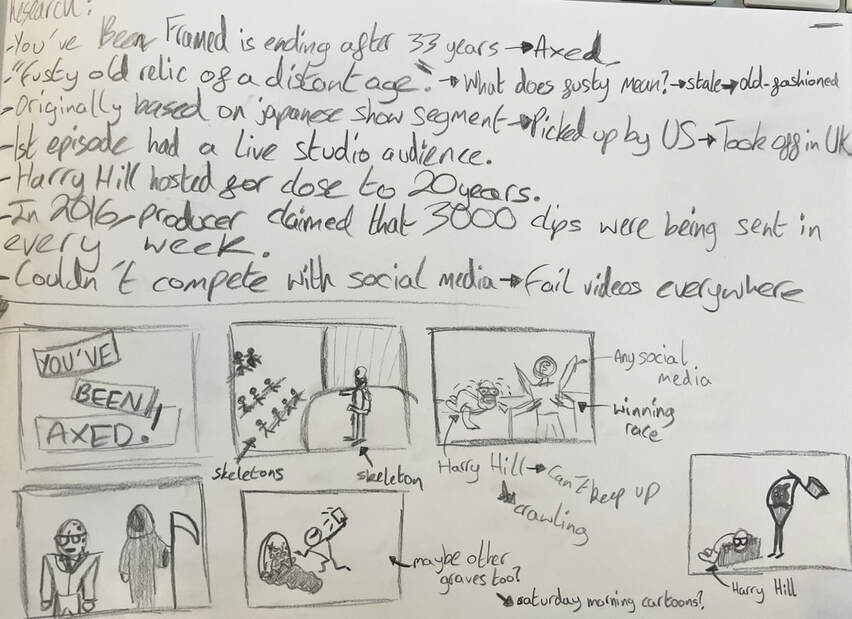 Research:
-You've Been Framed is ending after 33 years→Axed
-"Fusty old relic of a distant age."→What does fusty mean?→stale→old-fashioned
-Originally based on japanese show segment→Picked up by US→Took off in UK
-1st episode had a live studio audience.
-Harry Hill hosted for close to 20 years.
-In 2016, producer claimed that 3000 clips were being sent in
every week.
-Couldn't compete with social media→Fail videos everywhere
YOU'VE
BEEN
AXED!
skeletons
skeleton
Any social
media
winning
race
Harry Hill→Can't keep up
crawling
maybe other
graves too?
saturday morning cartoons?
Harry Hill